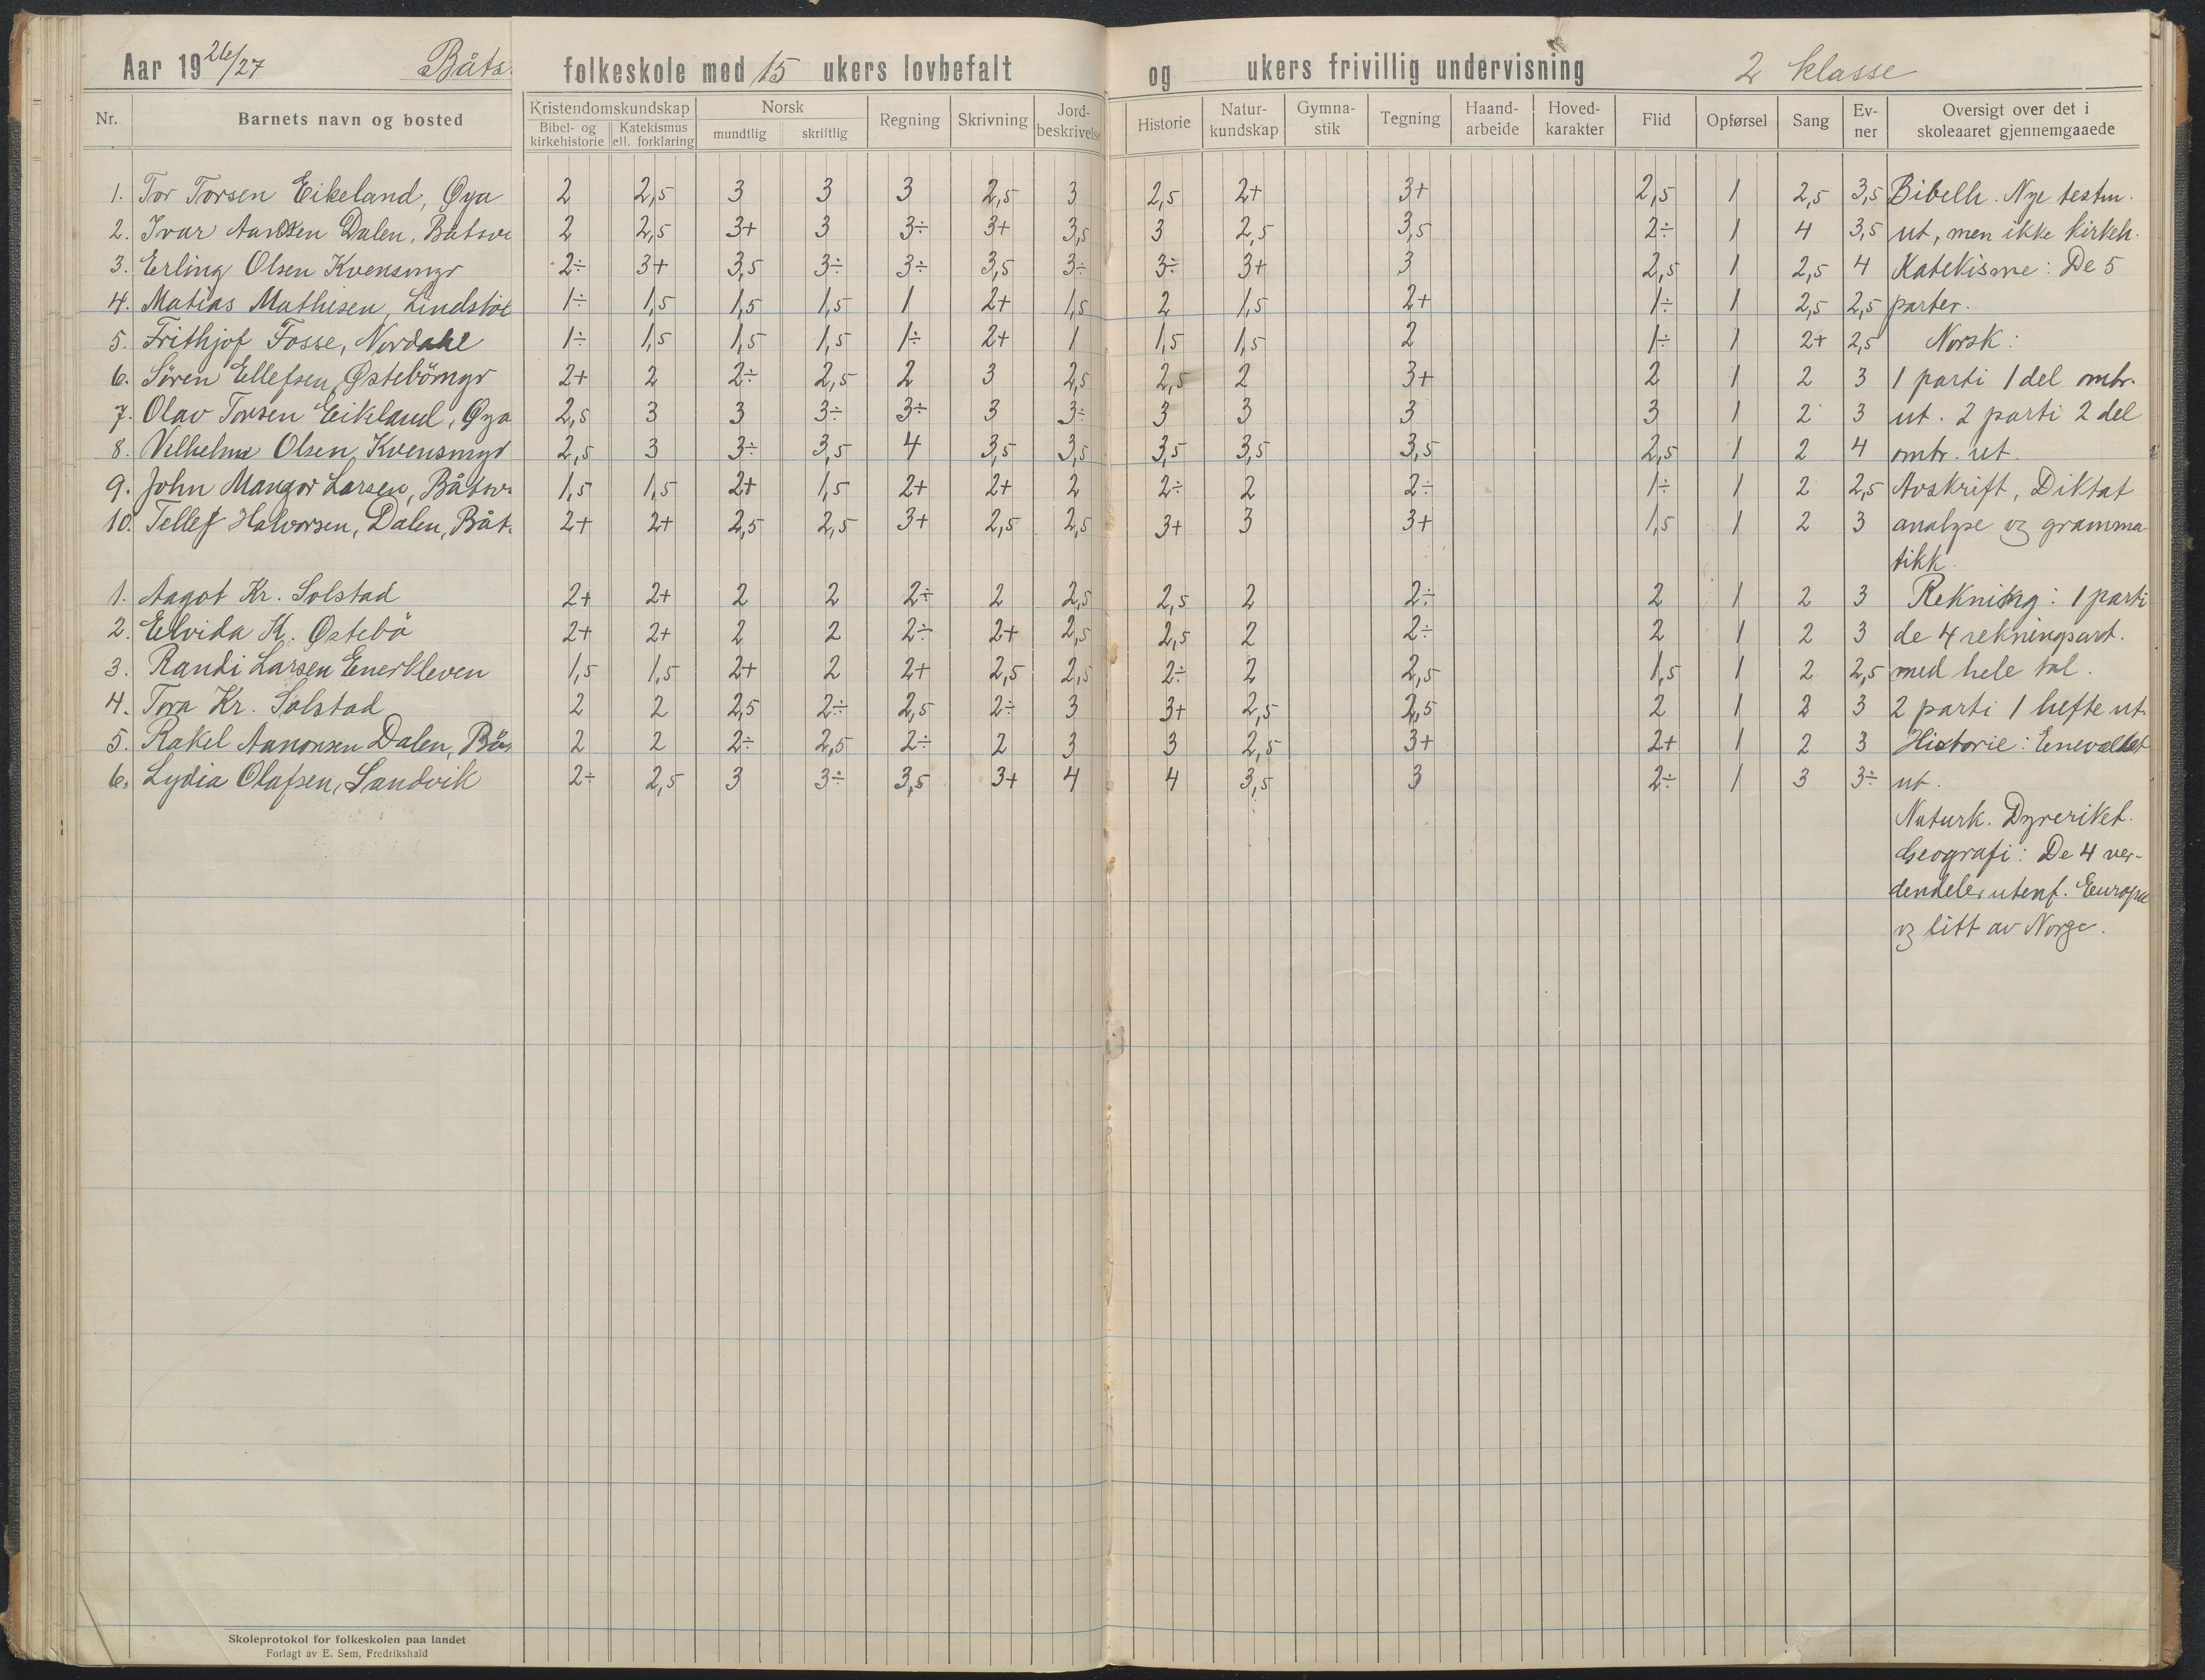 Aar 1926/27 Båts. folkeskole med 15 ukers lovbefalt og ukers frivillig undervisning 2 klasse
Nr. Barnets navn og bosted Kristendomskundskap Norsk Regning Skrivning Jord-beskrivelse Historie Natur-kundskap Gymna-stik Tegning Haand-arbeide Hoved-karakter Flid Opførsel Sang Ev-ner Oversigt over det i skoleaaret gjennemgaaede
Bibel- og kirkehistorie Katekismus ell. forklaring mundtlig skriftlig
1. Tor Torsen Eikeland, Øya 2 2,5 3 3 3 2,5 3 2,5 2+ 3+ 2,5 1 2,5 3,5 Bibelh. Nye testm.
2. Ivar Dalen, Båtsv 2 2,5 3+ 3 3÷ 3+ 3,5 3 2,5 3,5 2÷ 1 4 3,5 ut, men ikke kirkeh.
3. Erling Olsen Kvensmyr 2÷ 3+ 3,5 3÷ 3÷ 3,5 3÷ 3÷ 3+ 3 2,5 1 2,5 4 Katekisme: De 5
4. Matias Mathisen, Lindstøl 1÷ 1,5 1,5 1,5 1 2+ 1,5 2 1,5 2+ 1÷ 1 2,5 2,5 parter.
5. Frithjof Fosse, Nordahl 1÷ 1,5 1,5 1,5 1÷ 2+ 1 1,5 1,5 2 1÷ 1 2+ 2,5 Norsk:
6. Søren Ellefsen, Østebömyr 2+ 2 2÷ 2,5 2 3 2,5 2,5 2 3+ 2 1 2 3 1 parti 1 del omtr.
7. Olav Torsen Eikland, Øya 2,5 3 3 3÷ 3÷ 3 3÷ 3 3 3 3 1 2 3 ut. 2 parti 2 del
8. Vilhelm Olsen Kvensmyr 2,5 3 3÷ 3,5 4 3,5 3,5 3,5 3,5 3,5 2,5 1 2 4 omtr. ut.
9. John Mangor Larsen, Båtsv. 1,5 1,5 2+ 1,5 2+ 2+ 2 2÷ 2 2÷ 1÷ 1 2 2,5 Avskrift, Diktat
10. Tellef Halvorsen, Dalen, Båt. 2+ 2+ 2,5 2,5 3+ 2,5 2,5 3+ 3 3+ 1,5 1 2 3 analyse og gramma-
tikk.
1. Aagot Kr. Solstad 2+ 2+ 2 2 2÷ 2 2,5 2,5 2 2÷ 2 1 2 3 Rekning: 1 parti
2. Elvida K. Østebö 2+ 2+ 2 2 2÷ 2+ 2,5 2,5 2 2÷ 2 1 2 3 de 4 rekningsart.
3. Randi Larsen Enerkleven 1,5 1,5 2+ 2 2+ 2,5 2,5 2÷ 2 2,5 1,5 1 2 2,5 med hele tal.
4. Tora Kr. Solstad 2 2 2,5 2÷ 2,5 2÷ 3 3+ 2,5 2,5 2 1 2 3 2 parti 1 hefte ut.
5. Rakel Aanonsen Dalen, Bå 2 2 2÷ 2,5 2÷ 2 3 3 2,5 3+ 2+ 1 2 3 Historie: Eneveldet
6. Lydia Olafsen, Sandvik 2÷ 2,5 3 3÷ 3,5 3+ 4 4 3,5 3 2÷ 1 3 3÷ ut.
Naturk. Dyreriket.
Geografi: De 4 ver-
dendeler utenf. Europa
og litt av Norge.
Skoleprotokol for folkeskolen paa landet
Forlagt av E. Sem, Fredrikshald